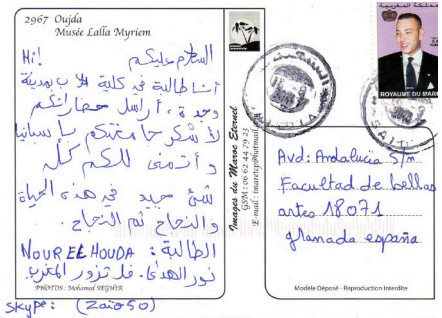 2967 Oujda
Musée Lalla Myriem
Hi! السلام عليكم
أنا طالبة في كلية الآداب بمدينة
وجدة، أراسل حضراتكم
لأشكر جامعتكم بإسبانيا
و أتمنى لكم كل
شئ جيد في هذه الحياة
والنجاح ثم النجاح.
الطالبة: NOUR EL HOUDA
نور الهدى.
PHOTOS : Mohamed SEGHIR
Skype: (Zaio50)
Images du Maroc Eternel
GSM : 06 62 44 79 23
ROYAUME DU MAROC
Avd: Andalucia S/n
Facultad de bellas
artes 18071
granada españa
Modèle Déposé - Reproduction Interdite